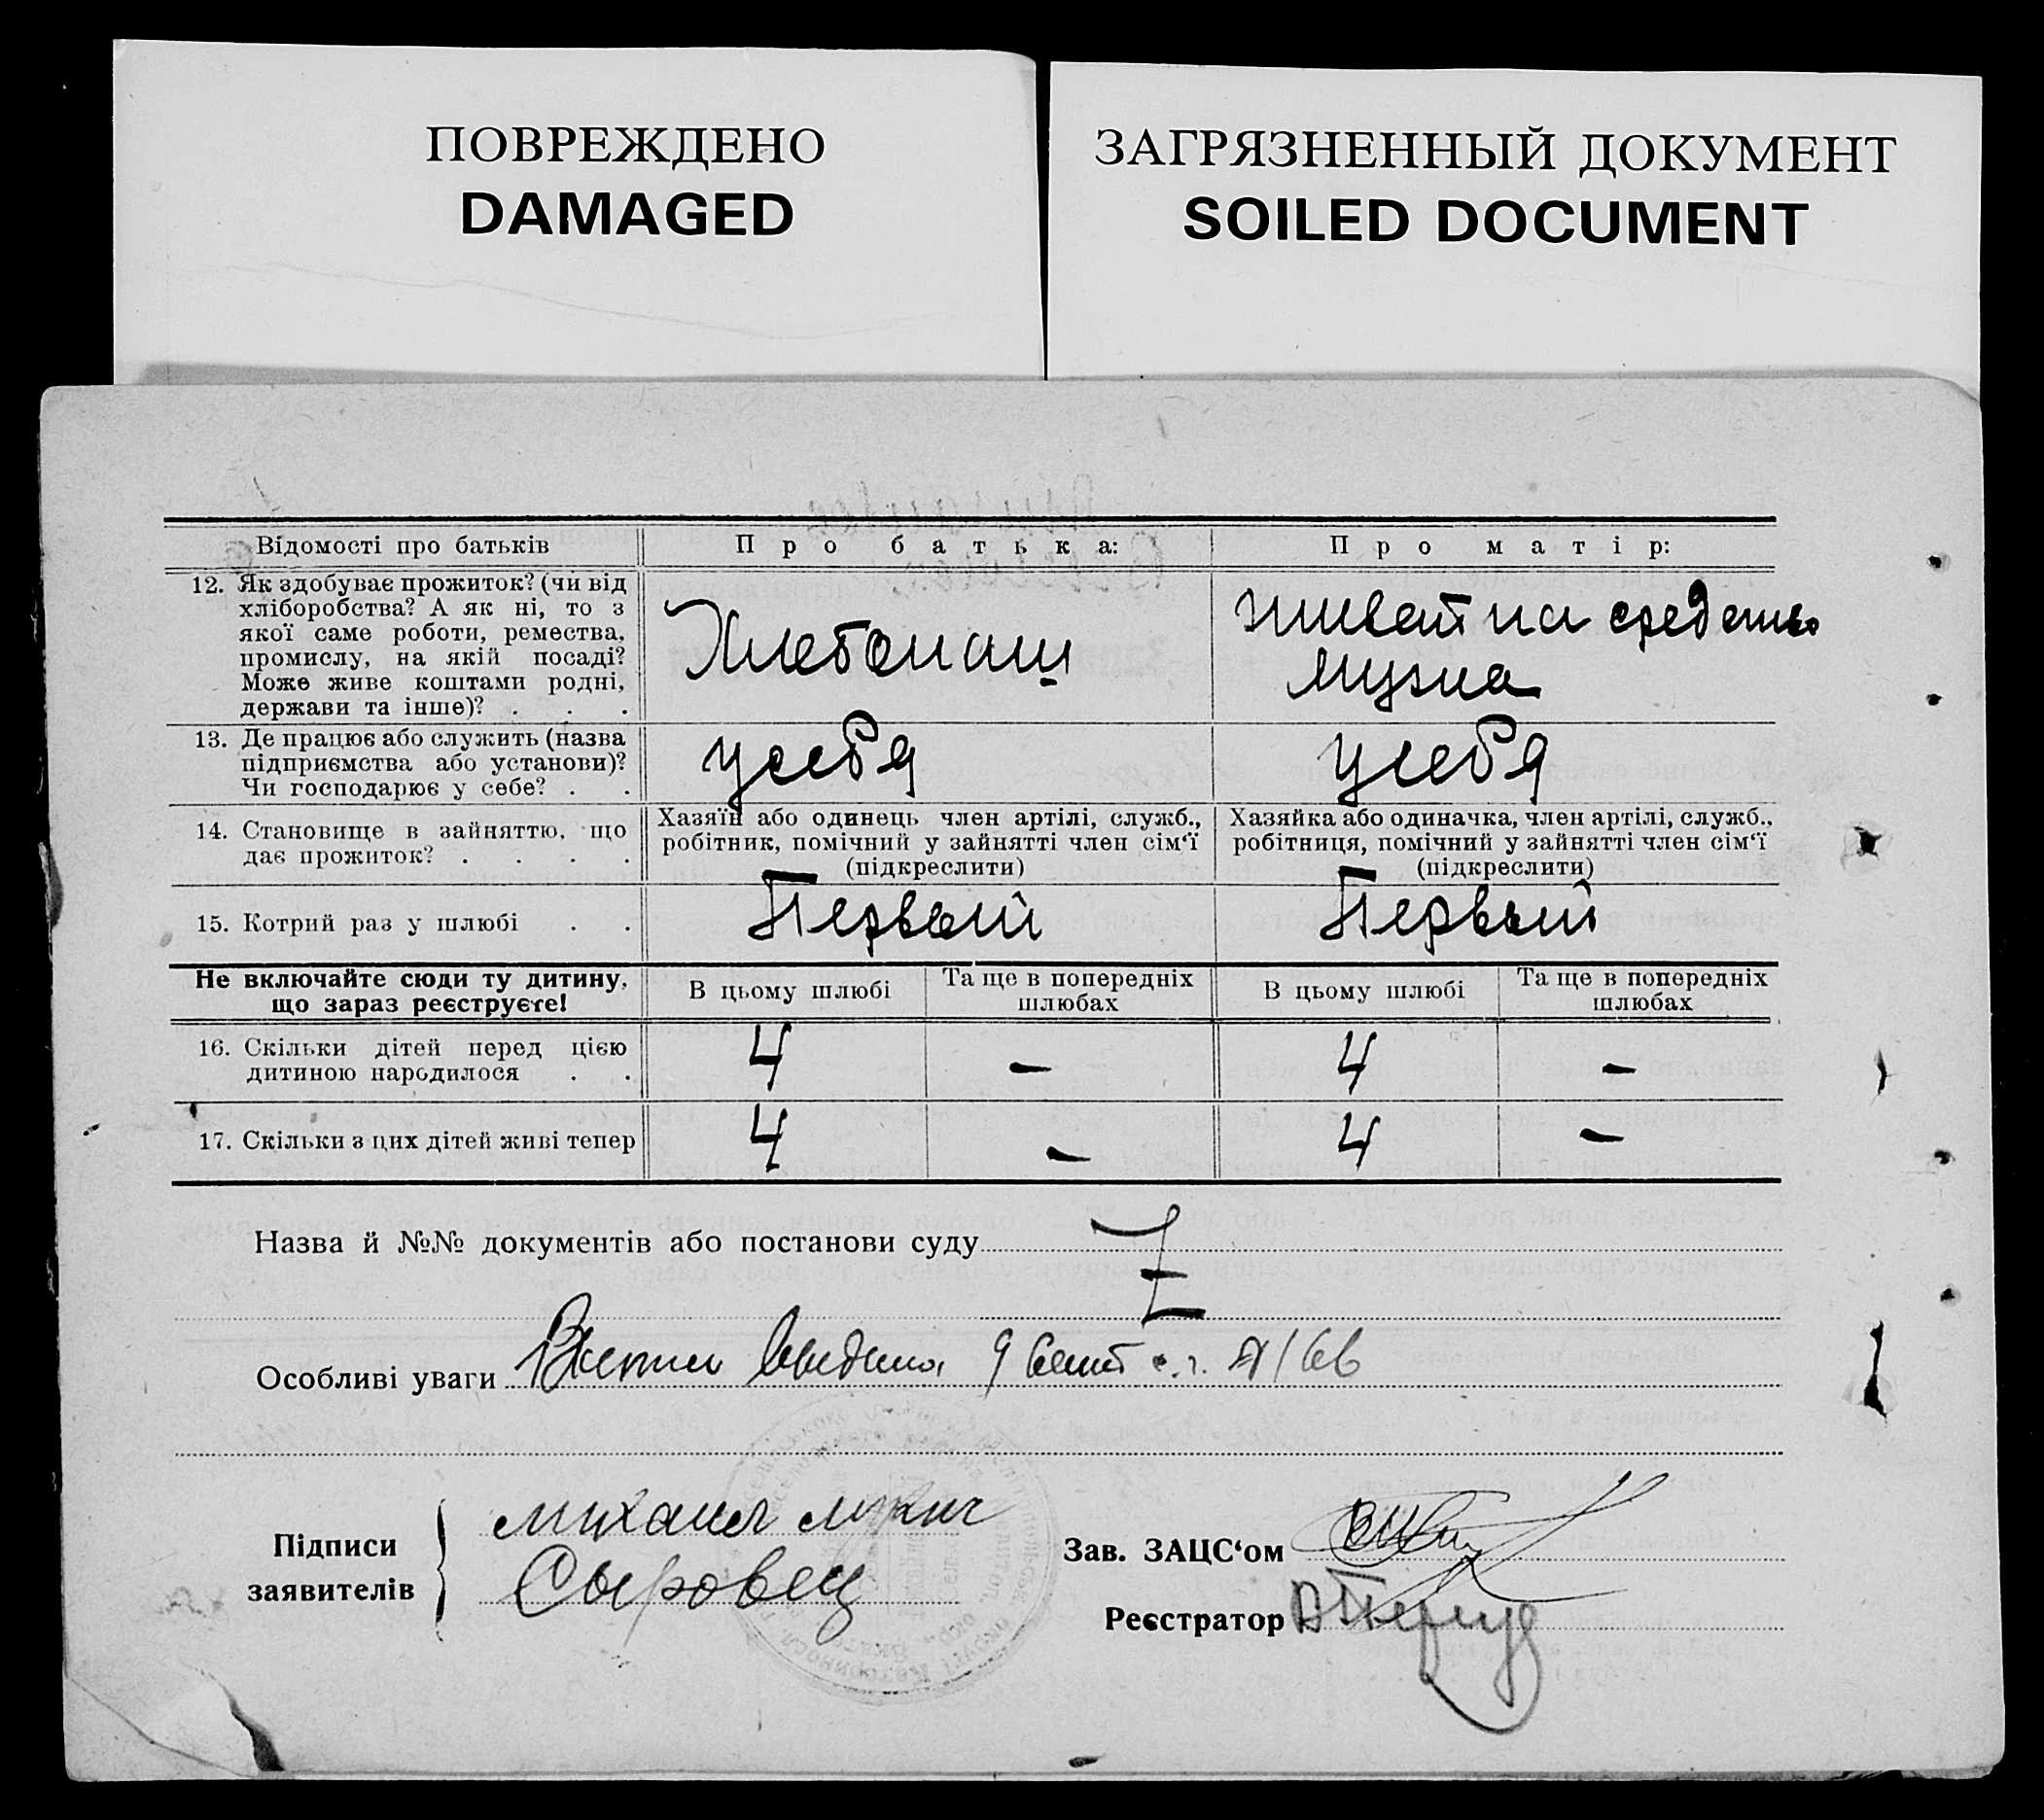 ПОВРЕЖДЕНО
DAMAGED
ЗАГРЯЗНЕННЫЙ ДОКУМЕНТ
SOILED DOCUMENT
Відомості про батьків
Про батька:
Про матір:
12. Як здобуває прожиток? (чи від
хліборобства? А як ні, то з
якої саме роботи, ремества,
промислу, на якій посаді?
Може живе коштами родні,
держави та інше)? . . .
Хлебопаш
живет на средства
мужа
13. Де працює або служить (назва
підприємства або установи)?
Чи господарює у себе? . .
у себя
у себя
14. Становище в зайняттю, що
дає прожиток? . . . .
Хазяїн або одинець член артілі, служб.,
робітник, помічний у зайнятті член сім'ї
(підкреслити)
Хазяйка або одиначка, член артілі, служб.,
робітниця, помічний у зайнятті член сім'ї
(підкреслити)
15. Котрий раз у шлюбі . .
Первый
Первый
Не включайте сюди ту дитину,
що зараз реєструєте!
В цьому шлюбі
Та ще в попередніх
шлюбах
В цьому шлюбі
Та ще в попередніх
шлюбах
16. Скільки дітей перед цією
дитиною народилося . .
4
–
4
–
17. Скільки з цих дітей живі тепер
4
–
4
–
Назва й №№ документів або постанови суду
Особливі уваги 9 с.г.
Підписи
заявителів
Михаил
Сыровец
Зав. ЗАЦС'ом
Реєстратор